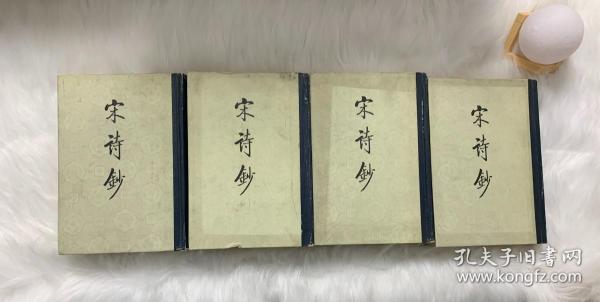 宋诗鈔
宋诗鈔
宋诗鈔
宋诗鈔
孔夫子旧书网
www.kongfz.com